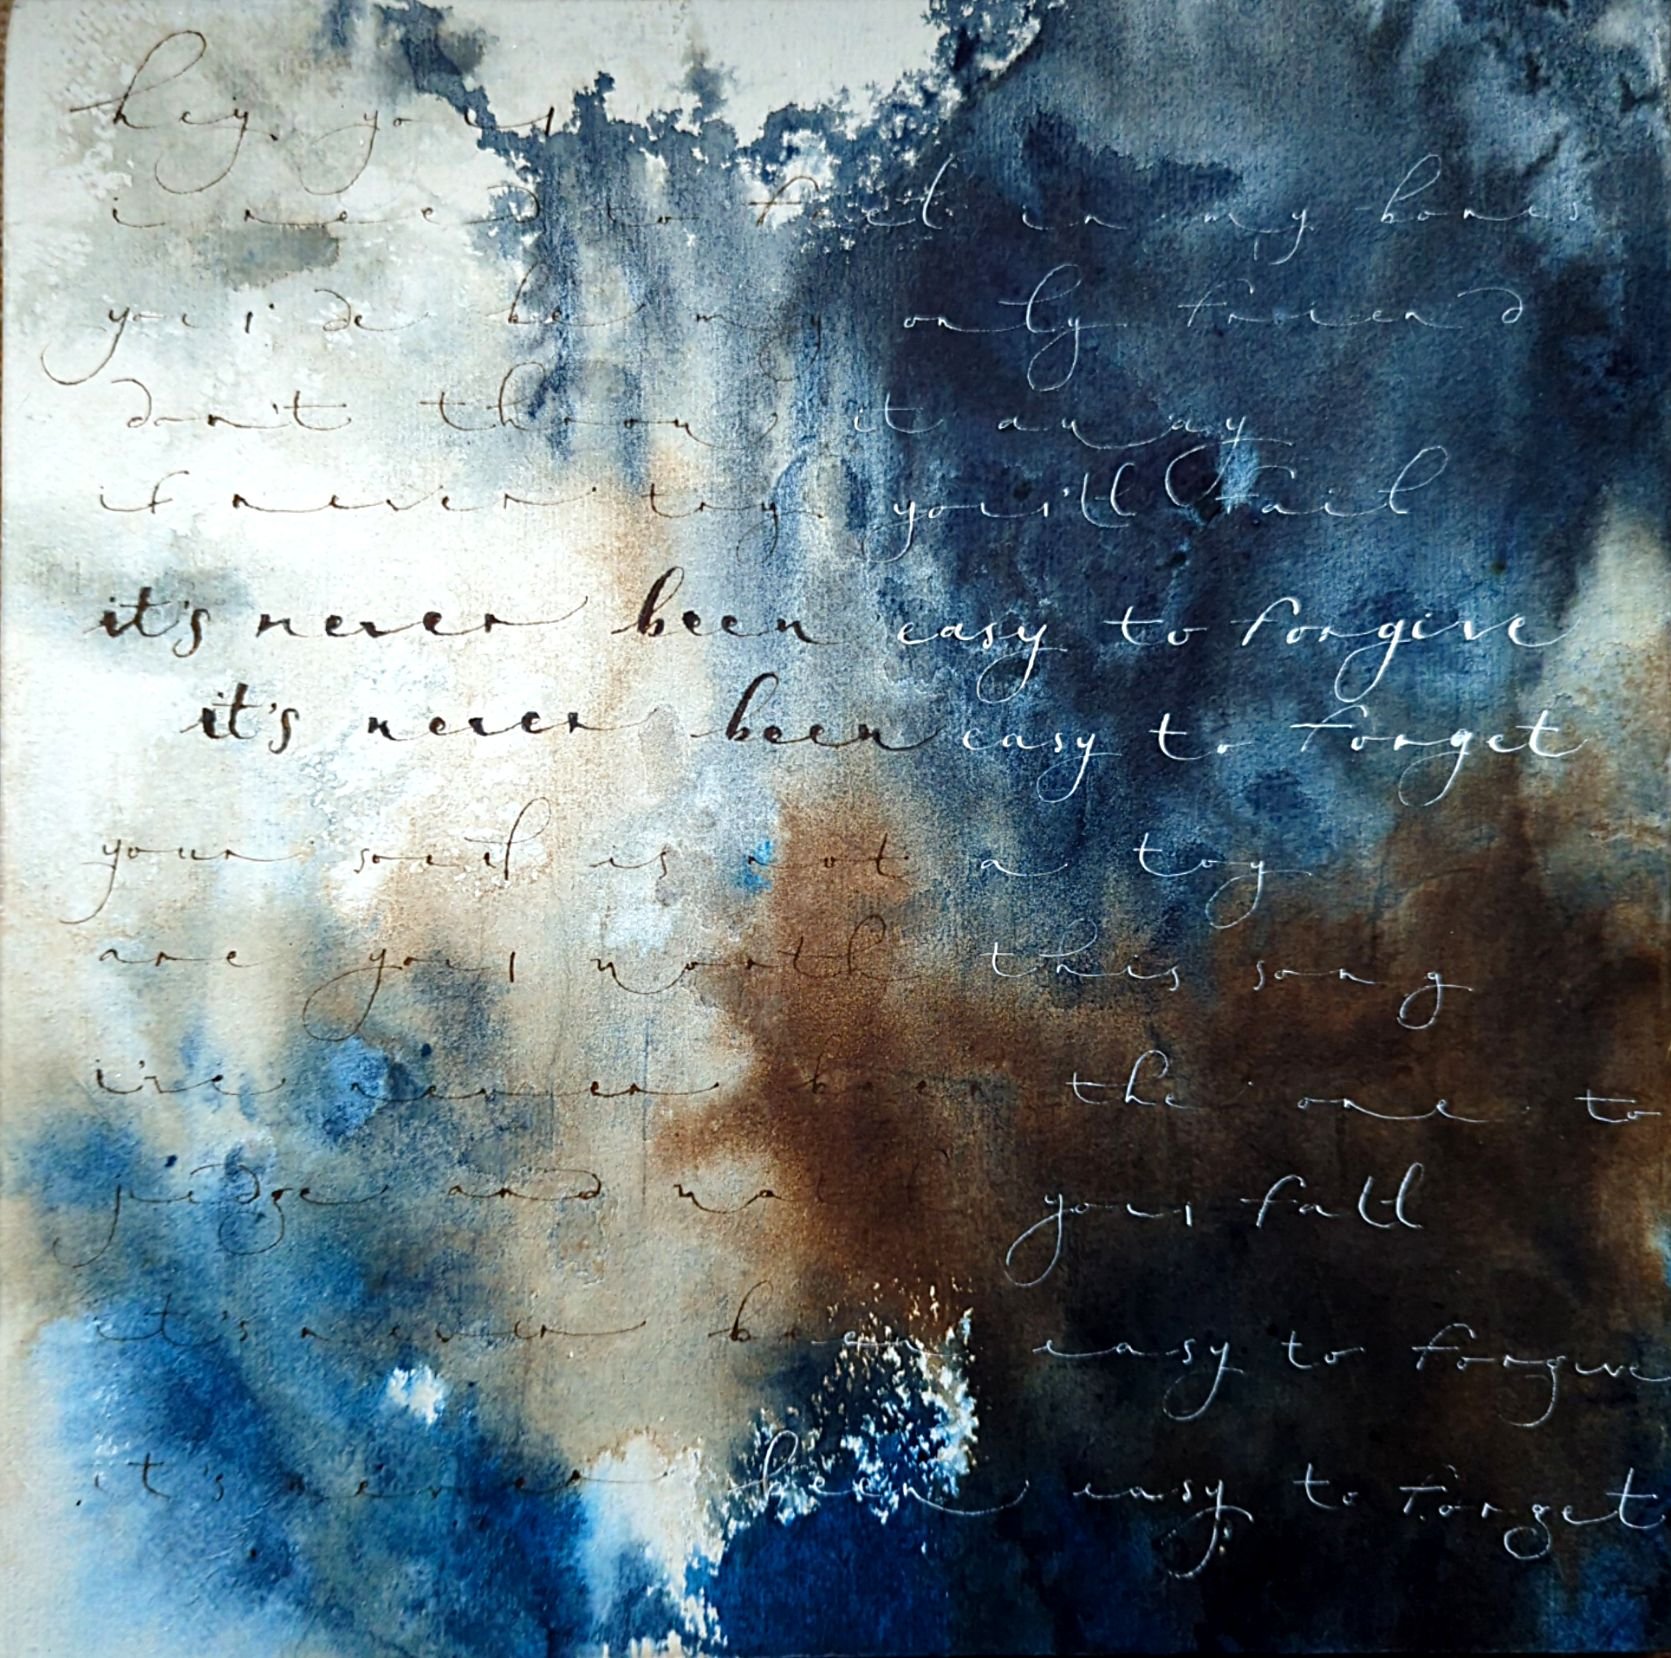 hey, you
i need to feel in my bones
you'de be my only friend
don't throw it away
if never try you'll fail
it's never been easy to forgive
it's never been easy to forget
your soul is not a toy
are you worth this song
i've never been the one to
judge and wa your fall
it's never been easy to forgive
it's never been easy to forget